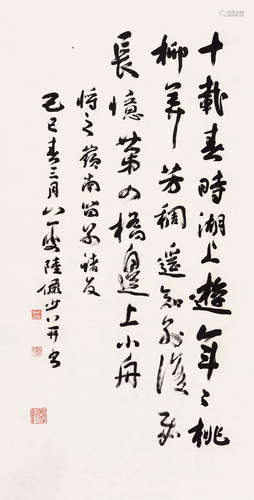 十載春時湖上遊年々桃
柳弄芳稠遥知別後
長憶第四橋邊上小舟
將之嶺南留別諸友
己巳春三月八一叟陸儼少并書